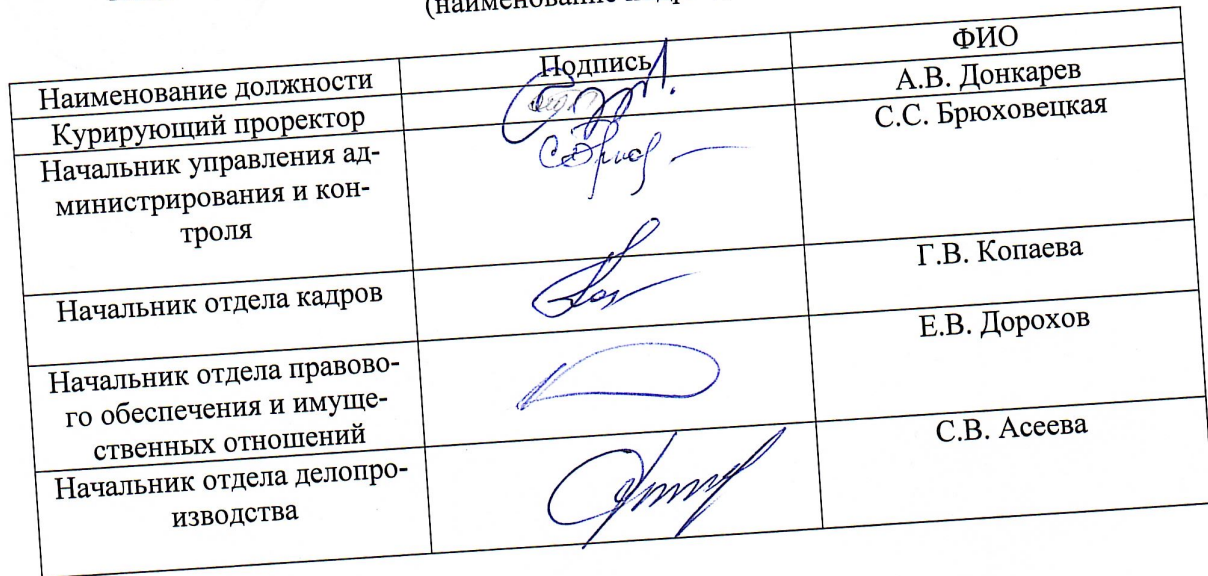 (наименование
Наименование должности Подпись ФИО
Курирующий проректор А.В. Донкарев
Начальник управления ад-
министрирования и кон-
троля
С.С. Брюховецкая
Начальник отдела кадров Г.В. Копаева
Начальник отдела правово-
го обеспечения и имуще-
ственных отношений
Е.В. Дорохов
Начальник отдела делопро-
изводства
С.В. Асеева